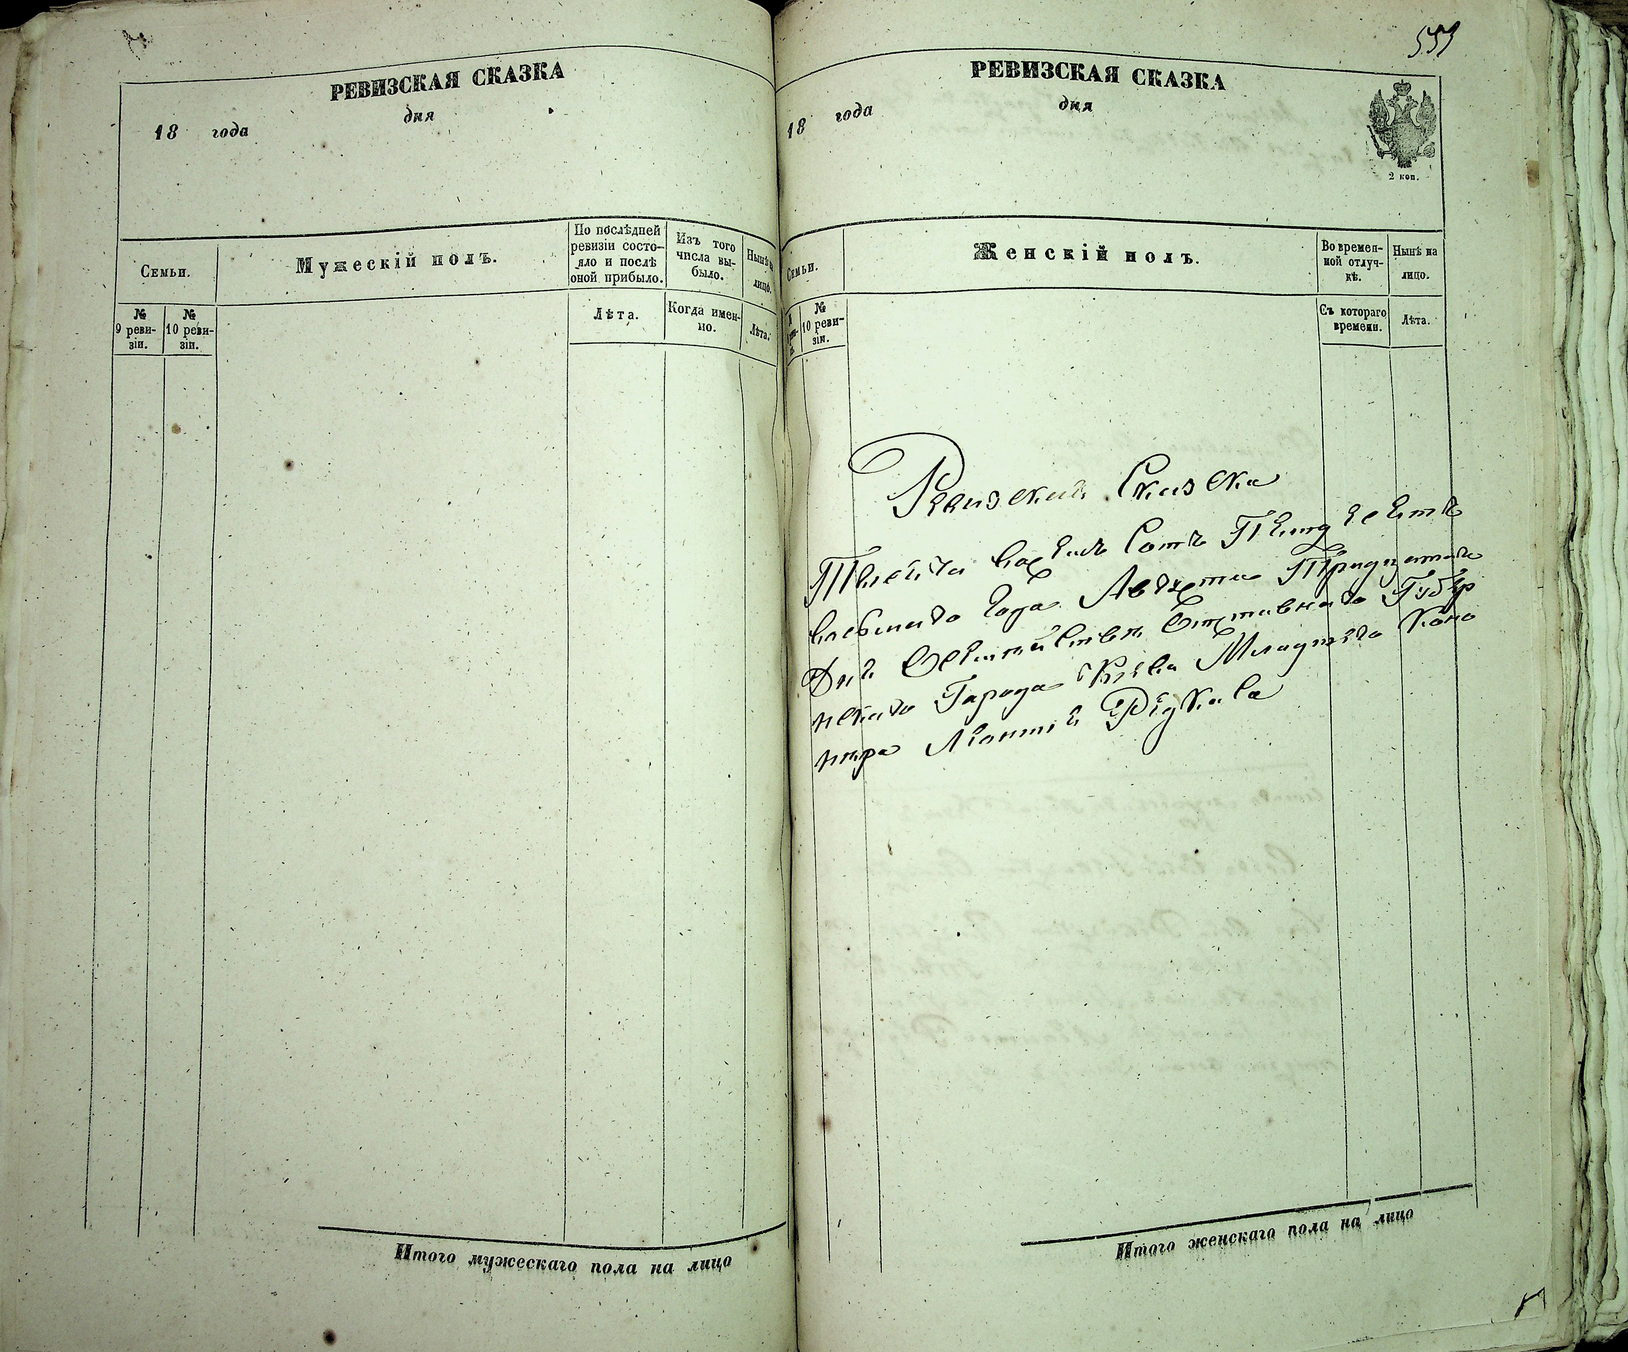 РЕВИЗСКАЯ СКАЗКА
18 года дня
Семьи.
Мужескій полъ.
По послѣдней
ревизіи состо-
яло и послѣ
оной прибыло.
Изъ того
числа вы-
было.
Нынѣ на
лицо.
№
9 реви-
зіи.
№
10 реви-
зіи.
Лѣта.
Когда имен-
но.
Лѣта.
Итого мужескаго пола на лицо
559
РЕВИЗСКАЯ СКАЗКА
18 года дня
2 коп.
Семьи.
Женскій полъ.
Во времен-
ной отлуч-
кѣ.
Нынѣ на
лицо.
№
10 реви-
зіи.
Съ котораго
времени.
Лѣта.
Ревизская Сказка
Тысяча восемь Сотъ Пятдесятъ
восьмаго Года Августа Тридцатаго
Дня Отставнаго Губер
нскаго Города Кіева Младшаго Кано
нера
Итого женскаго пола на лицо